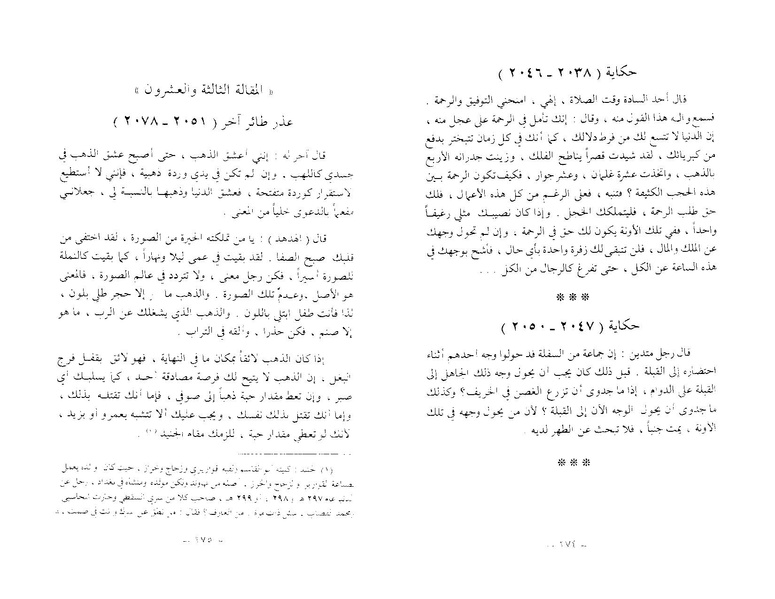 حكاية ( ٢٠٣٨ ـ ٢٠٤٦ )
قال أحد السادة وقت الصلاة ، إلهي ، امنحني التوفيق والرحمة .
فسمع واله هذا القول منه ، وقال : إنك تأمل في الرحمة على عجل منه ،
إن الدنيا لا تتسع لك من فرط دلالك ، كما أنك في كل زمان تتبختر بدفع
من كبريائك ، لقد شيدت قصراً يناطح الفلك ، وزينت جدرانه الأربع
بالذهب ، واتخذت عشرة غلمان ، وعشر جوار ، فكيف تكون الرحمة بين
هذه الحجب الكثيفة ؟ فتنبه ، فعلى الرغم من كل هذه الأعمال ، فلك
حق طلب الرحمة ، فليتملكك الخجل . وإذا كان نصيبك مثلي رغيفاً
واحداً ، ففي تلك الآونة يكون لك حق في الرحمة ، وإن لم تحول وجهك
عن الملك والمال ، فلن تتبقى لك زفرة واحدة بأي حال ، فأشح بوجهك في
هذه الساعة عن الكل ، حتى تفرغ كالرجال من الكل . . .
***
حكاية ( ٢٠٤٧ ـ ٢٠٥٠ )
قال رجل متدين : إن جماعة من السفلة قد حولوا وجه أحدهم أثناء
احتضاره إلى القبلة . قيل ذلك كان يجب أن يحول وجه ذلك الجاهل إلى
القبلة على الدوام ، إذا ما جدوى أن تزرع الغصن في الخريف ؟ وكذلك
ما جدوى أن يحول الوجه الآن إلى القبلة ؟ لأن من يحول وجهه في تلك
الآونة ، يمت جنباً ، فلا تبحث عن الطهر لديه .
***
ـ ٢٧٤ ـ
« المقالة الثالثة والعشرون »
عذر طائر آخر ( ٢٠٥١ ـ ٢٠٧٨ )
قال آخر له : إنني أعشق الذهب ، حتى أصبح عشق الذهب في
جسدي كاللهب . وإن لم تكن في يدي وردة ذهبية ، فإنني لا أستطيع
الاستقرار كوردة متفتحة ، فعشق الدنيا وذهبها بالنسبة لي ، جعلاني
مفعماً بالدعوى خلياً من المعنى .
قال ( الهدهد ) : يا من تملكته الحيرة من الصورة ، لقد اختفى من
قلبك صبح الصفا . لقد بقيت في عمى ليلا ونهاراً ، كما بقيت كالنملة
للصورة أسيراً ، فكن رجل معنى ، ولا تتردد في عالم الصورة ، فالمعنى
هو الأصل وعدم تلك الصورة . والذهب ما إلا حجر طلي بلون ،
لذا فأنت طفل ابتلي باللون . والذهب الذي يشغلك عن الرب ، ما هو
إلا صنم ، فكن حذرا ، وألقه في التراب .
إذا كان الذهب لائقاً بمكان ما في النهاية ، فهو لائق بقفل فرج
البغل ، إن الذهب لا يتيح لك فرصة مصادقة أحد ، كما يسلبك أي
صبر ، وإن تعط مقدار حبة ذهباً إلى صوفي ، فإما أنك تقتله بذلك ،
وإما أنك تقتل بذلك نفسك ، ويجب عليك ألا تتشبه بعمرو أو بزيد ،
لأنك لو تعطي مقدار حبة ، للزمك مقام الجنيد (١) .
(١) جنيد : كنيته أبو القاسم ولقبه قواريري وزجاج وخراز ، حيث كان والده يعمل
بصناعة القوارير والزجاج والخرز . أصله من نهاوند ولكن مولده ومنشأه في بغداد . رحل عن
عام ٢٩٧ هـ و ٢٩٨ ، أو ٢٩٩ هـ ، صاحب كلا من سري السقطي وحارث المحاسبي
ومحمد القصاب . سئل ذات مرة ، من العارف ؟ فقال : من نطق عن سرك وأنت في صمت ،
ـ ٢٧٥ ـ